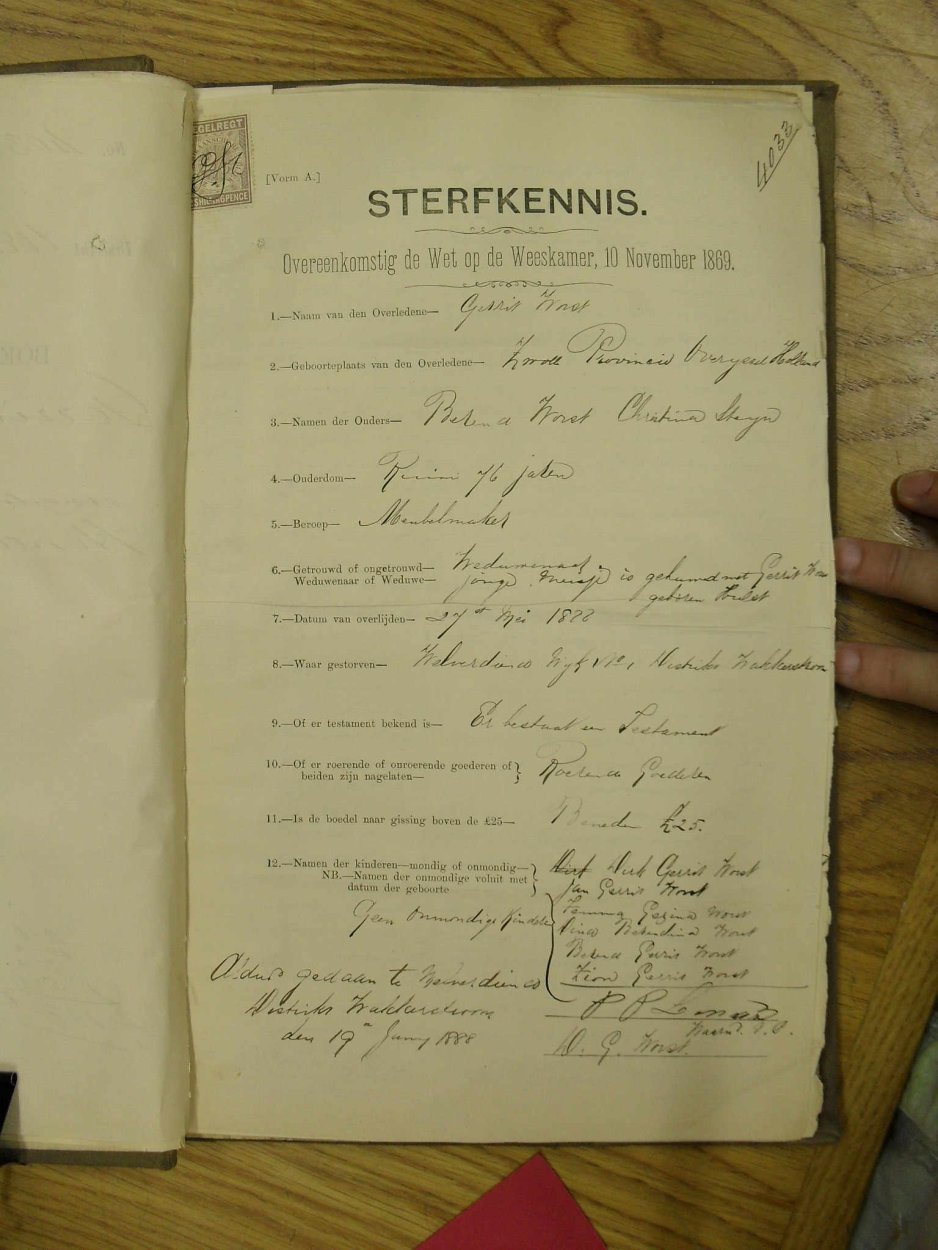 4033
ZEGELREGT
[Vorm A.]
STERFKENNIS.
Overeenkomstig de Wet op de Weeskamer, 10 November 1869.
1.—Naam van den Overledene— Gerrit Worst
2.—Geboorteplaats van den Overledene— Zwolle Provincie Overyssel Holland
3.—Namen der Ouders— Berend Worst Christina Steyn
4.—Ouderdom— Ruim 76 jaren
5.—Beroep— Meubelmaker
6.—Getrouwd of ongetrouwd— Weduwenaar
Weduwenaar of Weduwe— is gehuwd met Gerrit
geboren Hulst
7.—Datum van overlijden— 27st Mei 1888
8.—Waar gestorven— Welverdiend Wyk No 1 Distrikt Wakkerstroom
9.—Of er testament bekend is— Er bestaat een Testament
10.—Of er roerende of onroerende goederen of
beiden zijn nagelaten— Roerende Goederen
11.—Is de boedel naar gissing boven de £25— Beneden £25.
12.—Namen der kinderen—mondig of onmondig— Dirk Gerrit Worst
NB.—Namen der onmondige voluit met Jan Gerrit Worst
datum der geboorte
Geen Onmondige Kinders
Femma Gezina Worst
Dina Berendina Worst
Berend Gerris Worst
Gerris Worst
Aldus gedaan te Welverdiend
Distrikt Wakkerstroom
den 19n Juny 1888
D. G. Worst.